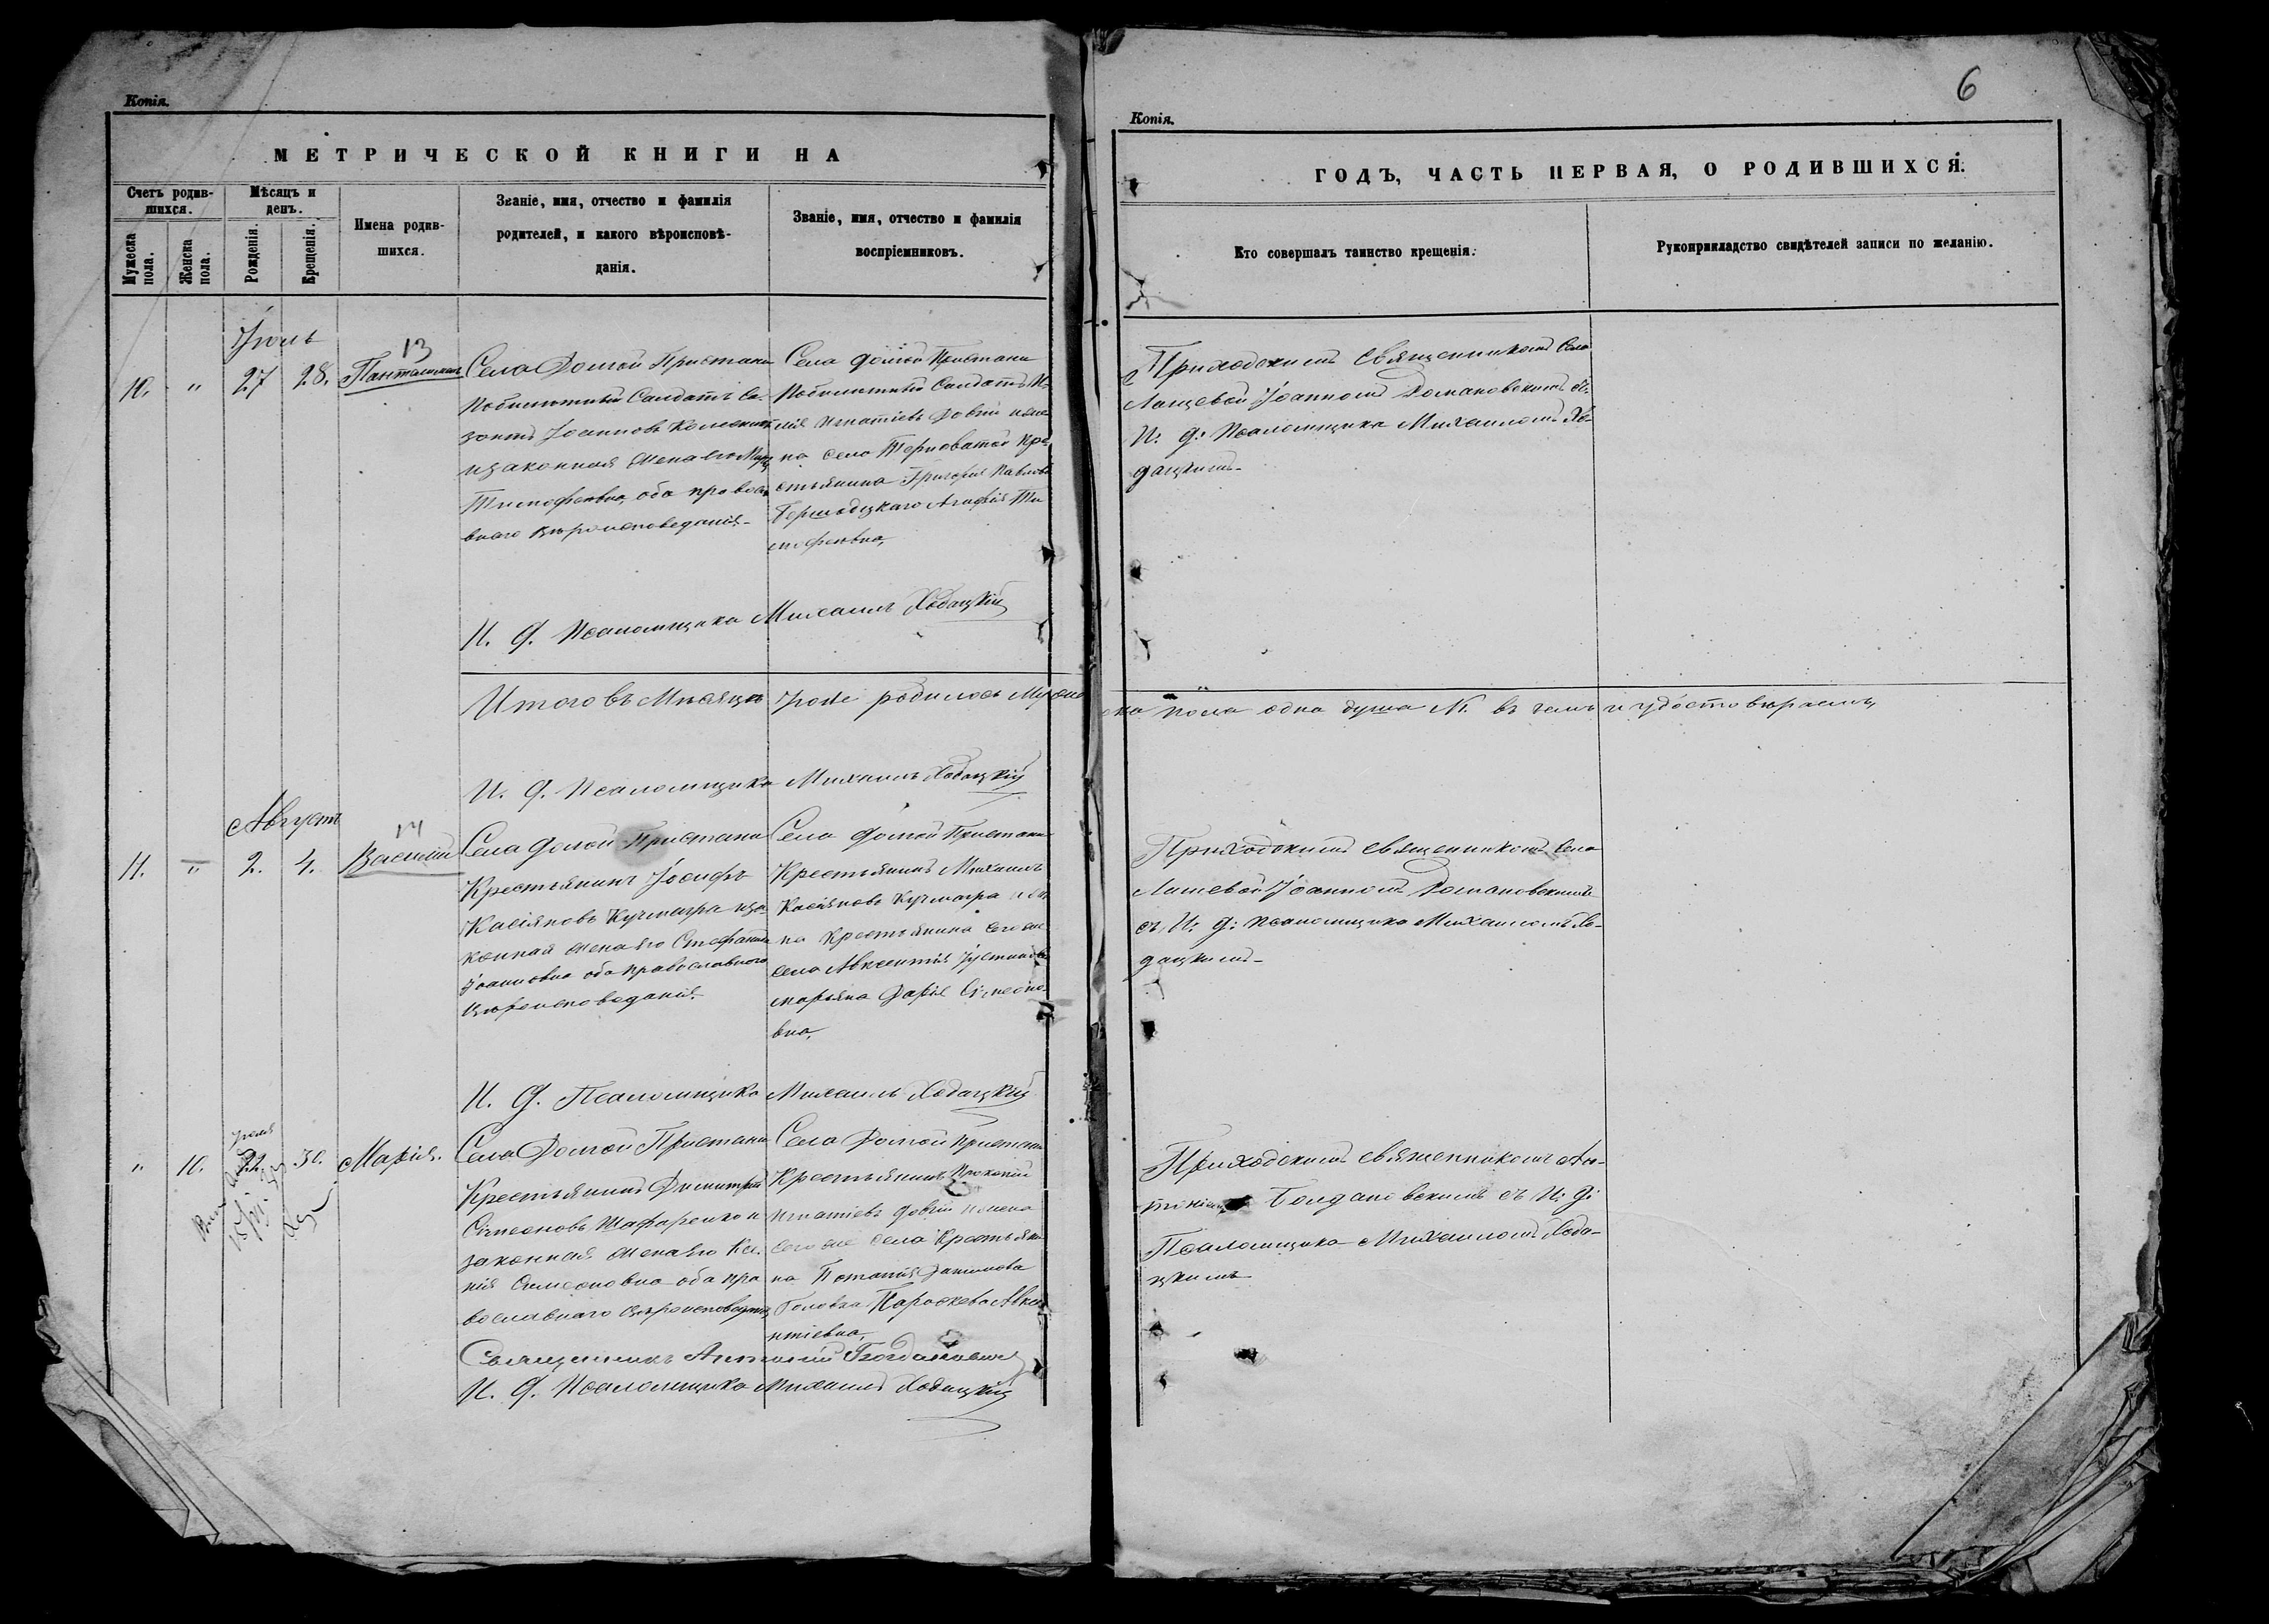 Копія.
МЕТРИЧЕСКОЙ КНИГИ НА
Счетъ родив-
шихся.
Мужеска
пола.
Женска
пола.
Мѣсяцъ и
день.
Рожденія.
Крещенія.
Имена родив-
шихся.
Званіе, имя, отчество и фамилія
родителей, и какого вѣроисповѣ-
данія.
Званіе, имя, отчество и фамилія
воспріемниковъ.
Іюль
10.
"
27
28.
13
Пантелеимонъ
Села Долгой Пристани
Побилетный Солдатъ Са-
зонтъ Іоанновъ
и законная жена его
Тимофеевна, оба правосла
внаго вѣроисповеданія.
Села Долгой Пристани
Побилетный Солдатъ
Игнатіевъ Довгій и же
на села Терноватой Кре
стьянина Григорія Павлова
Агафія Ти
мофеевна,
И. Д. Псаломщика Михаилъ Ходацкій
Итого въ Мѣсяцѣ Іюле родилось Мужес
И. Д. Псаломщика Михаилъ Ходацкій
Августъ
11.
"
2.
4.
14
Василій
Села Долгой Пристани
Крестьянинъ Іосифъ
Касіяновъ Кучмагра и за-
конная жена его Стефанида
Іоанновна оба православного
вѣроисповеданія.
Села Долгой Пристани
Крестьянинъ Михаилъ
Касіяновъ Кучмагра и же
на Крестьянина сего же
села Авксентія Іустинова
Дарія Сімеоно
вна,
И. Д. Псаломщика Михаилъ Ходацкій
"
10.
22
30.
Марія.
Села Долгой Пристани
Крестьянинъ Димитрій
Сімеоновъ Шафаренко и
законная жена его Ксе
нія Симеоновна оба пра
вославнаго вѣроисповеданія
Села Долгой Пристани
Крестьянинъ Прокопій
Игнатіевъ Довгій и жена
сего же села Крестьяни
на Потапія
Головка Параскева Авксе
нтіевна,
Священникъ Антоній Богдановичъ
И. Д. Псаломщика Михаилъ Ходацкій
6
Копія.
ГОДЪ, ЧАСТЬ ПЕРВАЯ, О РОДИВШИХСЯ.
Кто совершалъ таинство крещенія.
Рукоприкладство свидѣтелей записи по желанію.
Приходскимъ Священникомъ Села
Лащевой Іоанномъ Домановскимъ съ
И. д. Псаломщика Михаиломъ Хо-
дацкимъ
ка пола одна душа №. въ чемъ и удостовѣряемъ,
Приходскимъ священникомъ Села
Лащевой Іоанномъ Домановскимъ
съ И. д. Псаломщика Михаиломъ Хо-
дацкимъ
Приходскимъ священникомъ Ан-
съ И. д.
Псаломщика Михаиломъ Хода-
цкимъ